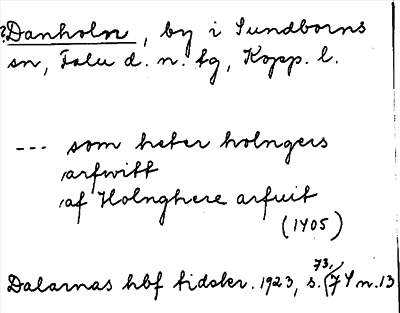 ?Danholn, by i Sundborns
sn, Falu d. n. tg, Kopp. l.
--- som heter holngers
arfwitt
af Holnghere arfuit
(1405)
Dalarnas hbf tidskr. 1923, s. 73, (74 n. 13